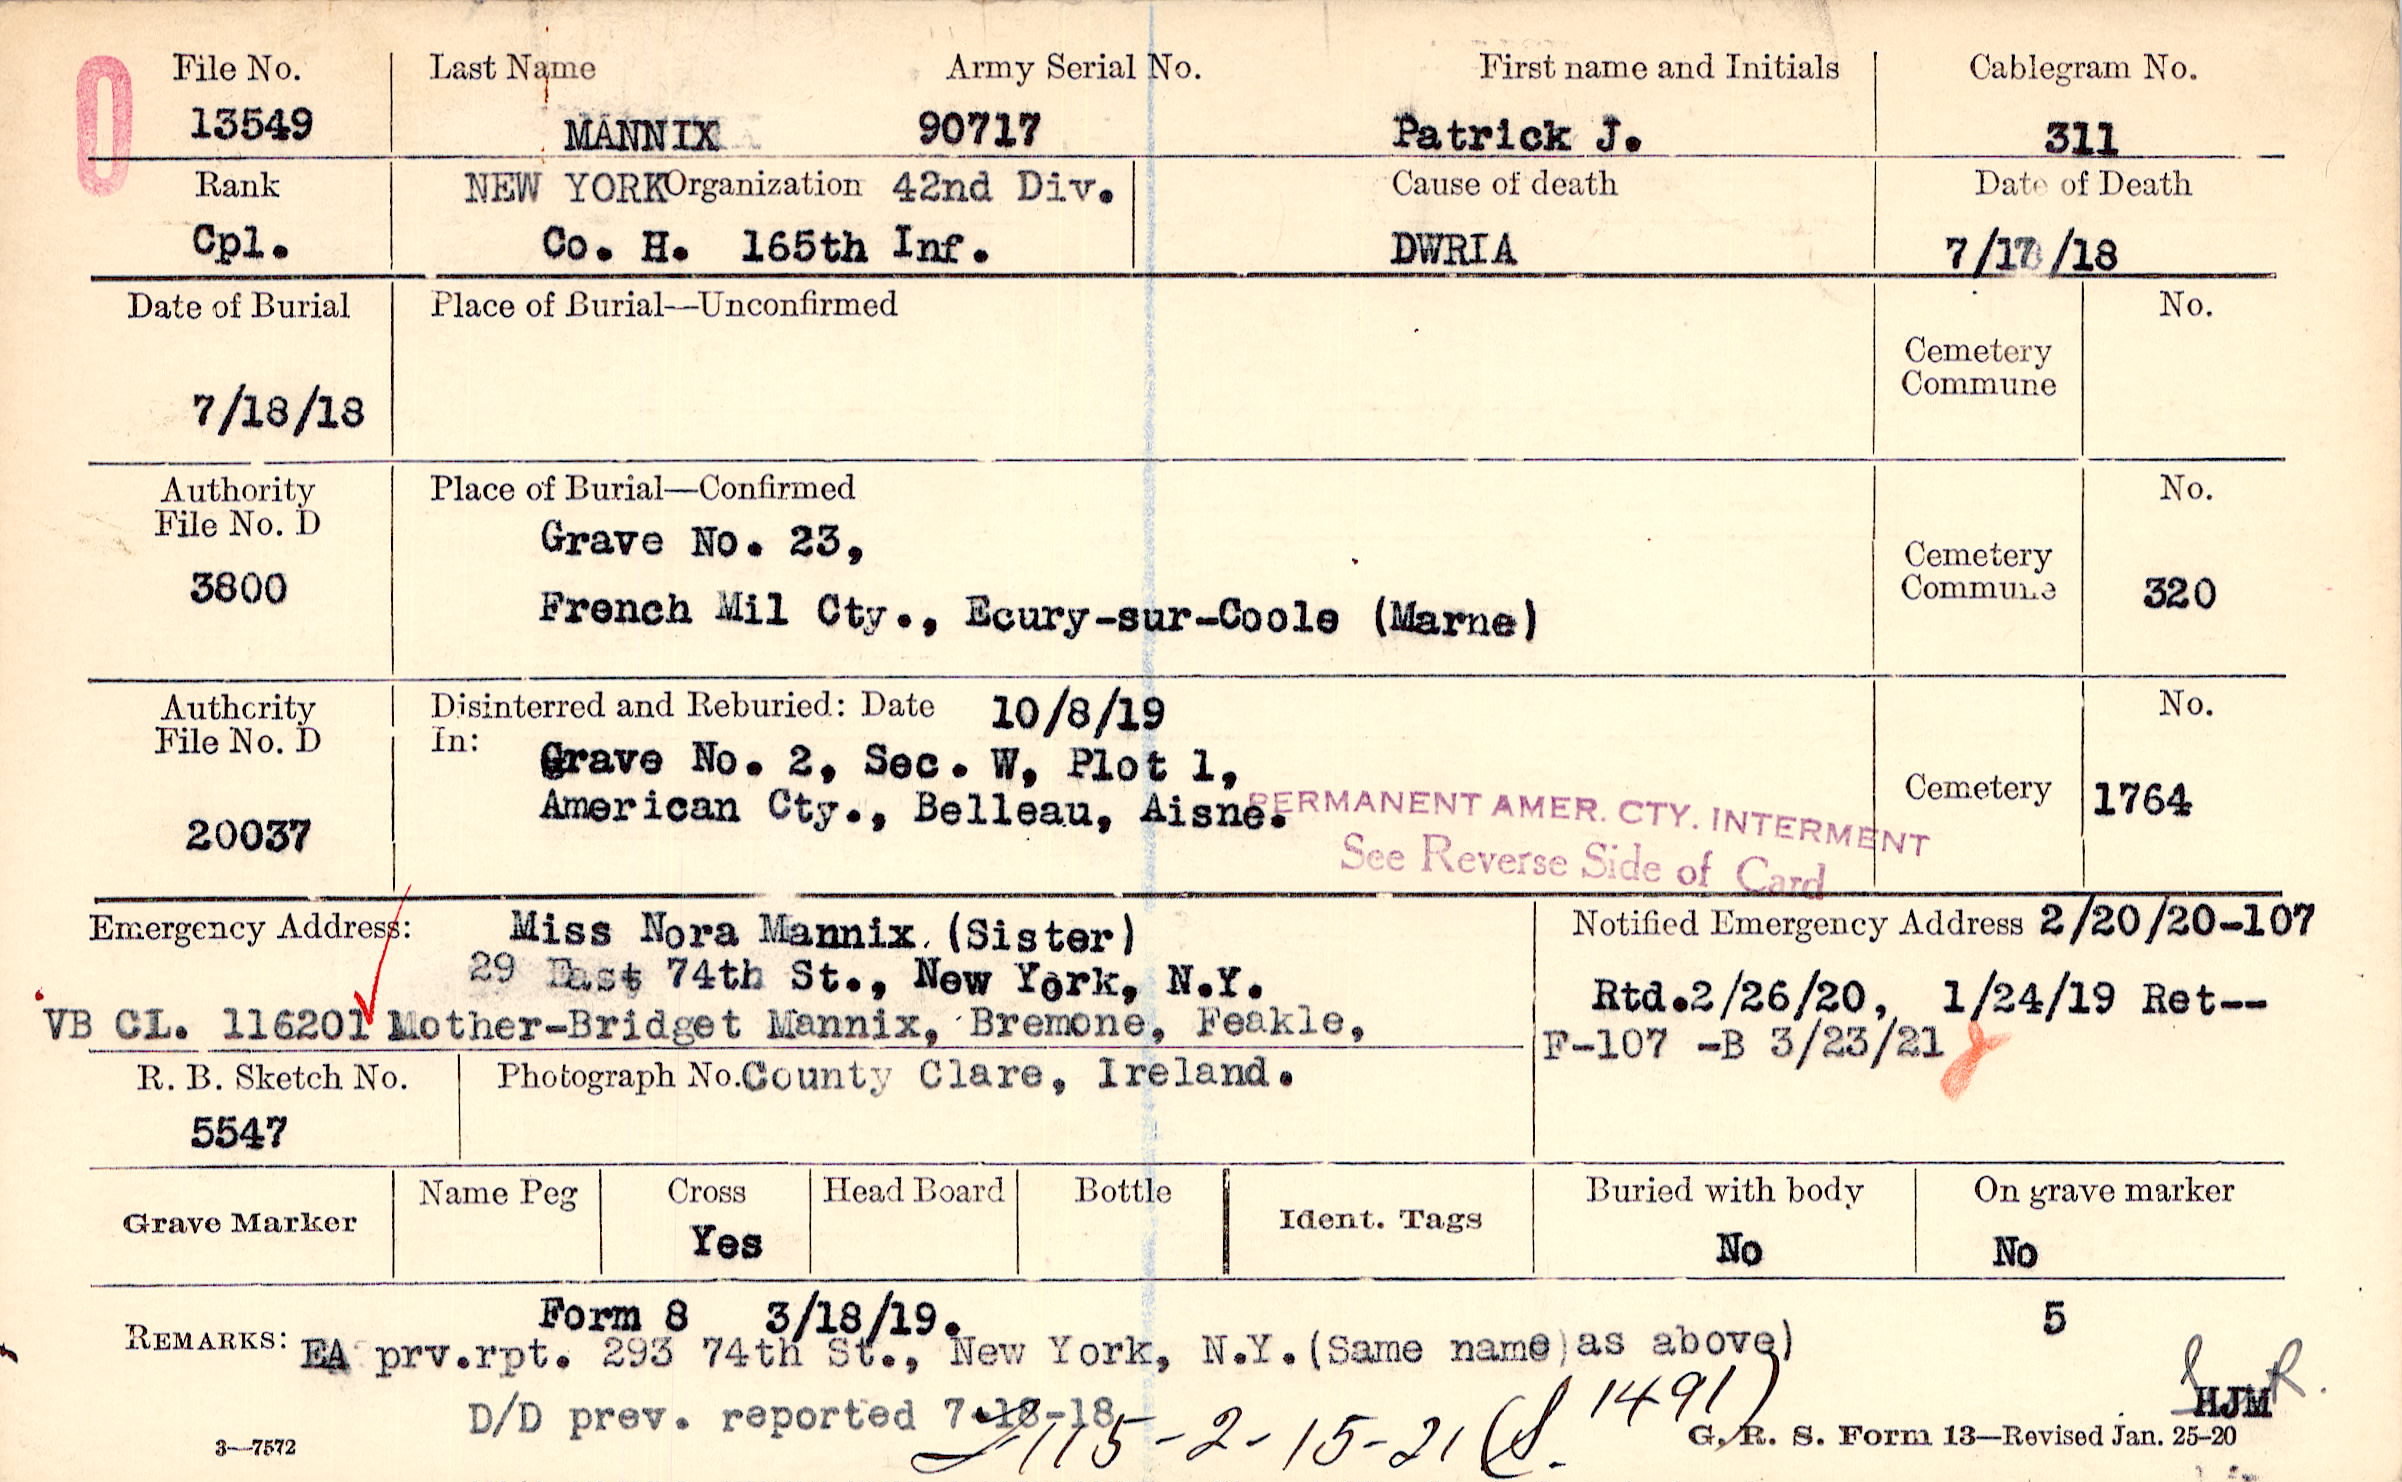 0
File No. Last Name Army Serial No. First name and Initials Cablegram No.
13549 MANNIX 90717 Patrick J. 311
Rank NEW YORK Organization 42nd Div. Cause of death Date of Death
Cpl. Co. H. 165th Inf. DWRIA 7/17/18
Date of Burial Place of Burial—Unconfirmed No.
Cemetery
Commune
7/18/18
Authority Place of Burial—Confirmed No.
File No. D
Grave No. 23,
3800
Cemetery
Commune 320
French Mil Cty., Ecury-sur-Coole (Marne)
Authority Disinterred and Reburied: Date 10/8/19 No.
File No. D In:
Grave No. 2, Sec. W, Plot 1,
American Cty., Belleau, Aisne. Cemetery 1764
PERMANENT AMER. CTY. INTERMENT
20037
See Reverse Side of Card
Emergency Address: Miss Nora Mannix (Sister) Notified Emergency Address 2/20/20-107
29 East 74th St., New York, N.Y.
Rtd.2/26/20, 1/24/19 Ret--
VB CL. 116201 Mother-Bridget Mannix, Bremone, Feakle,
F-107 -B 3/23/21
R. B. Sketch No. Photograph No. County Clare, Ireland.
5547
Grave Marker Name Peg Cross Head Board Bottle Ident. Tags Buried with body On grave marker
Yes No No
Form 8 3/18/19. 5
REMARKS: EA prv.rpt. 293 74th St., New York, N.Y.(Same name as above)
D/D prev. reported 7-18-18
115-2-15-21 (S. 1491)
HJM
3—7572 G. R. S. Form 13—Revised Jan. 25-20